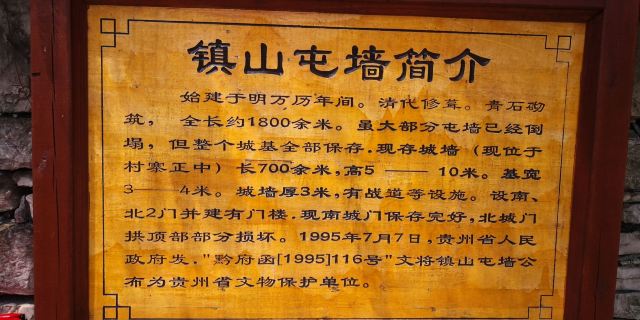 镇山屯墙简介
始建于明万历年间。清代修葺。贵石砌
筑，全长约1800余米。虽大部分屯墙已经倒
塌，但整个城基全部保存.现存城墙（现位于
村寨正中）长700余米，高5 —— 10米。基宽
3 —— 4米。城墙厚3米，有战道等设施。设南、
北2门并建有门楼。现南城门保存完好，北城门
拱顶部部分损坏。1995年7月7日，贵州省人民
政府发，"黔府函[1995]116号"文将镇山屯墙公
布为贵州省文物保护单位。